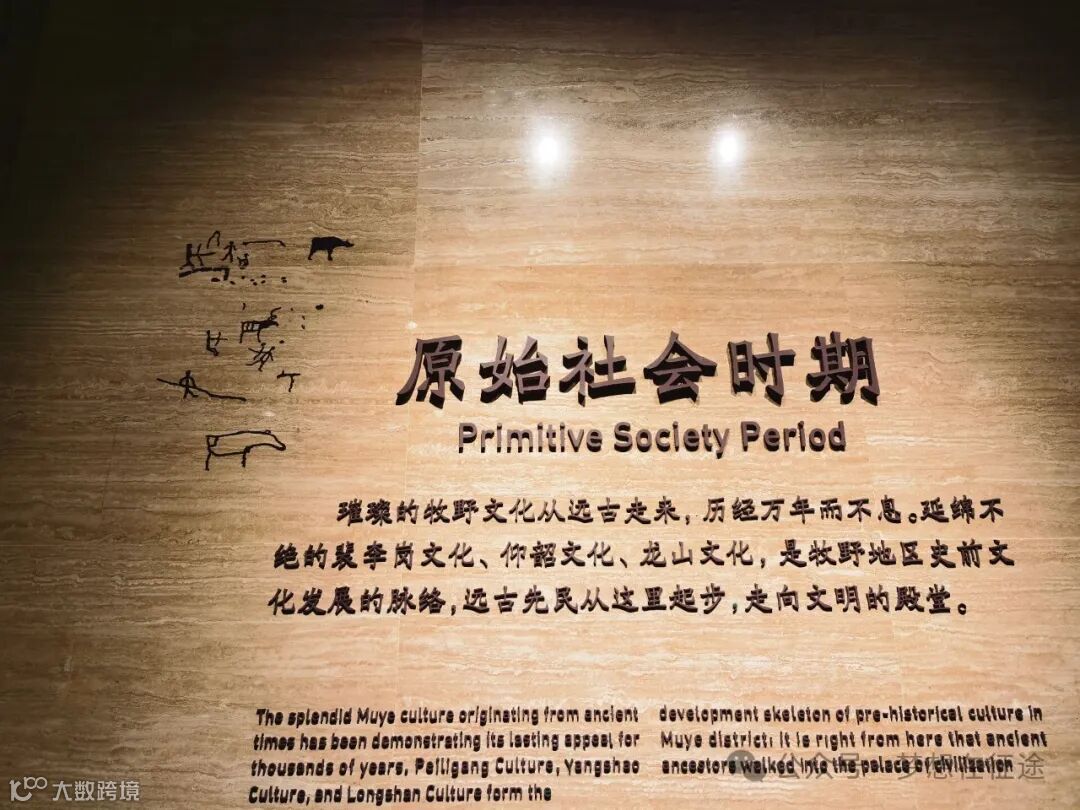 原始社会时期
Primitive Society Period
璀璨的牧野文化从远古走来，历经万年而不息。延绵不
绝的裴李岗文化、仰韶文化、龙山文化，是牧野地区史前文
化发展的脉络，远古先民从这里起步，走向文明的殿堂。
The splendid Muye culture originating from ancient
times has been demonstrating its lasting appeal for
thousands of years. Peiligang Culture, Yangshao
Culture, and Longshan Culture form the
development skeleton of pre-historical culture in
Muye district; it is right from here that ancient
ancestors walked into the palace of civilization
公众号 梦想在征途
大数跨境